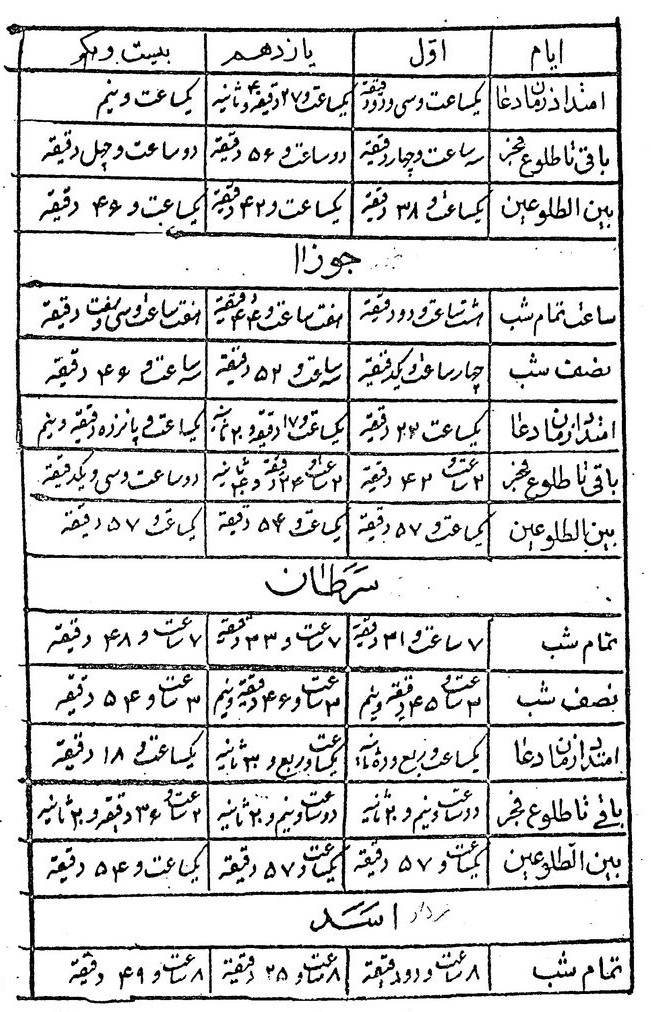 ایام اوّل یازدهم بیست ویکم
امتداد زمان دعا یکساعت وسی ودودقیقه یکساعت و۲۷ دقیقه و۴۰ ثانیه یکساعت ونیم
باقی تا طلوع فجر سه ساعت وچهاردقیقه دوساعت و ۵۶ دقیقه دوساعت وچهل دقیقه
بین الطلوعین یکساعت و ۳۸ دقیقه یکساعت و ۴۲ دقیقه یکساعت و ۴۶ دقیقه
جوزا
ساعت تمام شب هشت ساعت ودودقیقه هفت ساعت و ۴۴ دقیقه هفت ساعت وسی وهفت دقیقه
نصف شب چهارساعت ویکدقیقه سه ساعت و ۵۲ دقیقه سه ساعت و ۴۶ دقیقه
امتداد زمان دعا یکساعت ۲۳ دقیقه یکساعت و۱۷ دقیقه و ۲۰ ثانیه یکساعت و پانزده دقیقه ونیم
باقی تا طلوع فجر ۲ ساعت و ۴۲ دقیقه ۲ ساعت و ۳۴ دقیقه و ۴۰ ثانیه دوساعت وسی ویکدقیقه
بین الطلوعین یکساعت و ۵۷ دقیقه یکساعت و ۵۴ دقیقه یکساعت و ۵۷ دقیقه
سَرَطان
تمام شب ۷ ساعت و ۳۱ دقیقه ۷ ساعت و ۳۳ دقیقه ۷ ساعت و ۴۸ دقیقه
نصف شب ۳ ساعت و ۴۵ دقیقه ونیم ۳ ساعت و ۴۶ دقیقه ونیم ۳ ساعت و ۵۴ دقیقه
امتداد زمان دعا یکساعت وربع وده ثانیه یکساعت وربع و ۳۰ ثانیه یکساعت و ۱۸ دقیقه
باقی تا طلوع فجر دوساعت ونیم و ۲۰ ثانیه دوساعت ونیم و ۲۰ ثانیه ۲ ساعت و ۳۶ دقیقه و ۲۰ ثانیه
بین الطلوعین یکساعت و ۵۷ دقیقه یکساعت و ۵۷ دقیقه یکساعت و ۵۴ دقیقه
اَسَد
تمام شب ۸ ساعت ودودقیقه ۸ ساعت و ۲۵ دقیقه ۸ ساعت و ۴۹ دقیقه